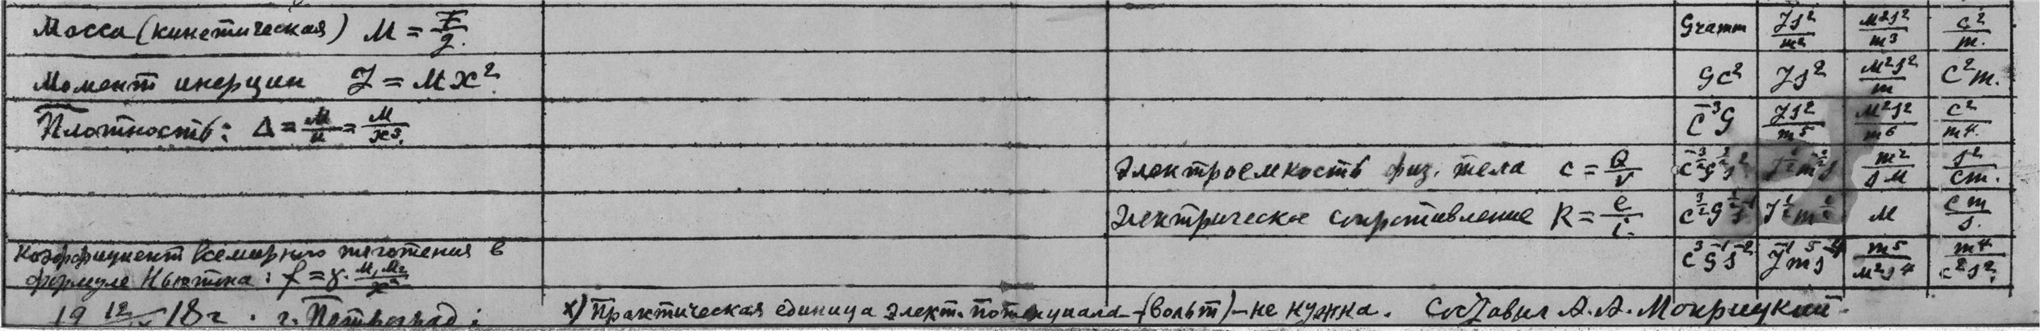 Масса (кинетическая) M = F/g. Gramm Js²/m² M²s²/m³ c²/m.
Момент инерции J = Mx². Gc² Js² M²s²/m C²m.
Плотность: Δ = M/u = M/x³. C̄³G Js²/m⁵ M²s²/m⁶ c²/m⁴
Электроемкость физ. тела c = Q/V m²/sM s²/cm.
Электрическое сопротивление R = e/i. M cm/s.
Коэффициент всемирного тяготения в
формуле Ньютона: f = γ · M₁M₂/x² m⁵/M²s⁴ m⁴/c²s².
19 12/ 18 г. г. Петроград:
x) Практическая единица элект. потенциала (вольт) – не нужна. Составил А. А. Мокрицкий.